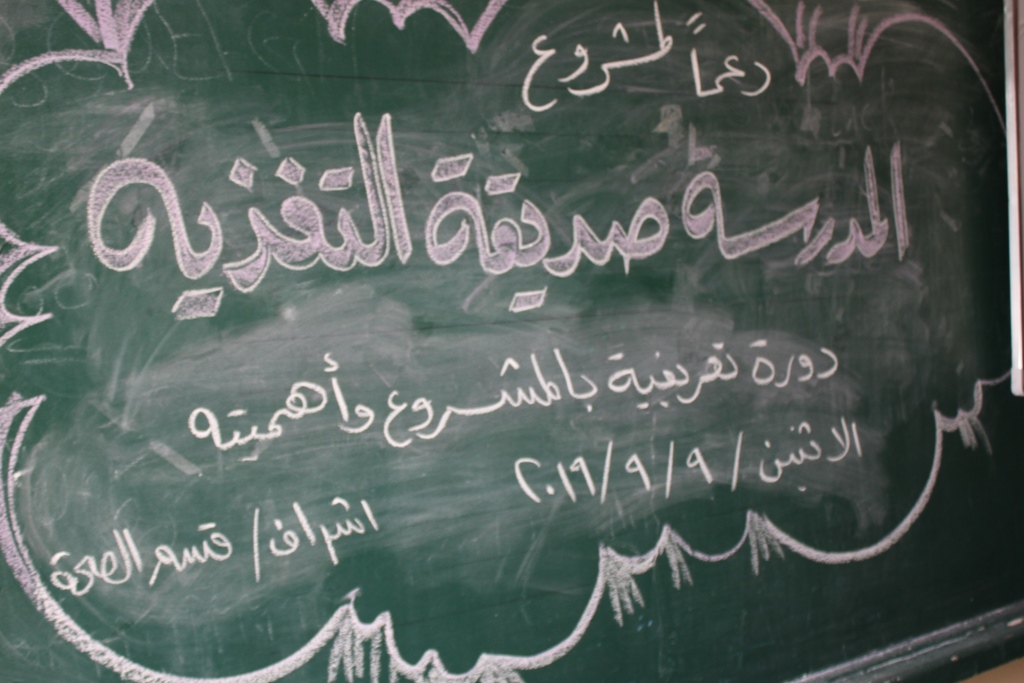 دعماً لمشروع
المدرسة صديقة التغذية
دورة تعريفية بالمشروع وأهميته
الاثنين / ٩ / ٩ / ٢٠١٩
اشراف / قسم الصحة